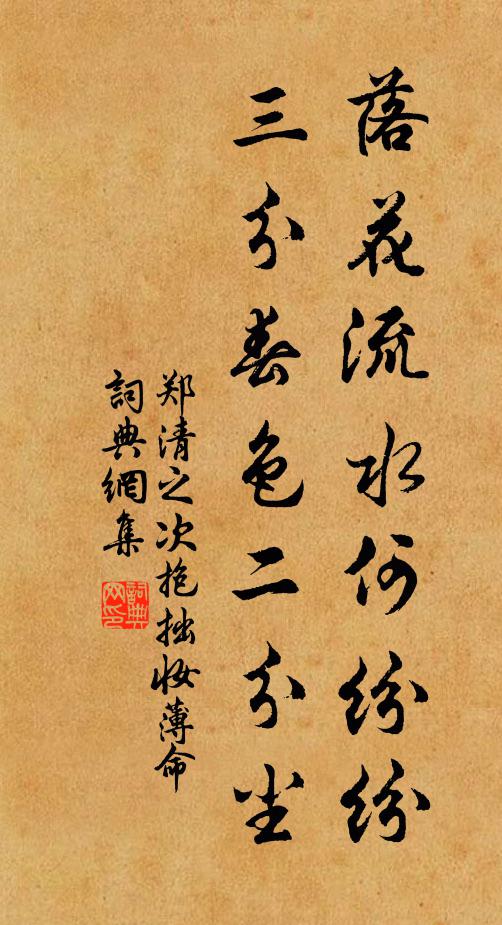 落花流水何纷纷
三分春色二分尘
郑清之次抱拙妆薄命
詞典網集
詞典网印